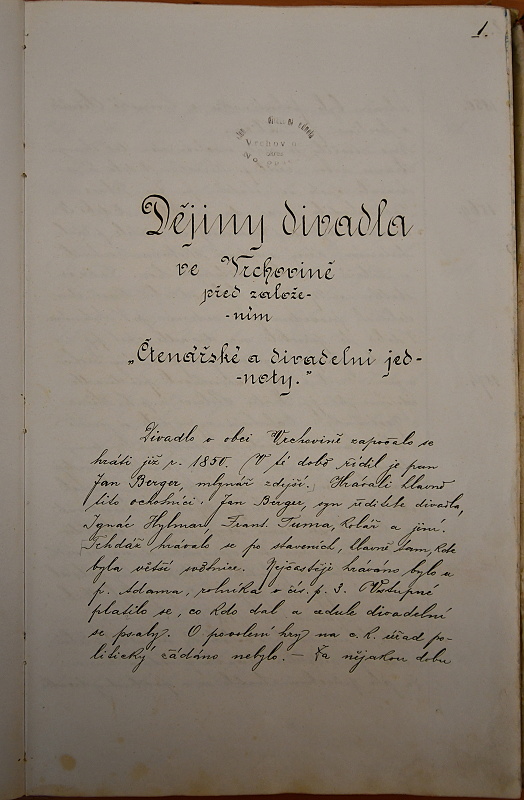 1.
Vrchov
Dějiny divadla
ve Vrchovině
před založe-
-ním
„Čtenářské a divadelní jed-
-noty.“
Divadlo v obci Vrchovině započalo se
hráti již r. 1850. (V té době řídil je pan
Jan Berger, mlynář zdejší.) Hrávali hlavně
tito ochotníci: Jan Berger, syn ředitele divadla,
Ignác Hylmar, Frant. Tuma, kolář a jiní.
Tehdáž hrávalo se po staveních, hlavně tam, kde
byla větší světnice. Nejčastěji hráváno bylo u
p. Adama, rolníka v čís. p. 3. Vstupné
platilo se, co kdo dal a cedule divadelní
se psaly. O povolení hry na c. k. úřad po-
litický žádáno nebylo. — Za nějakou dobu